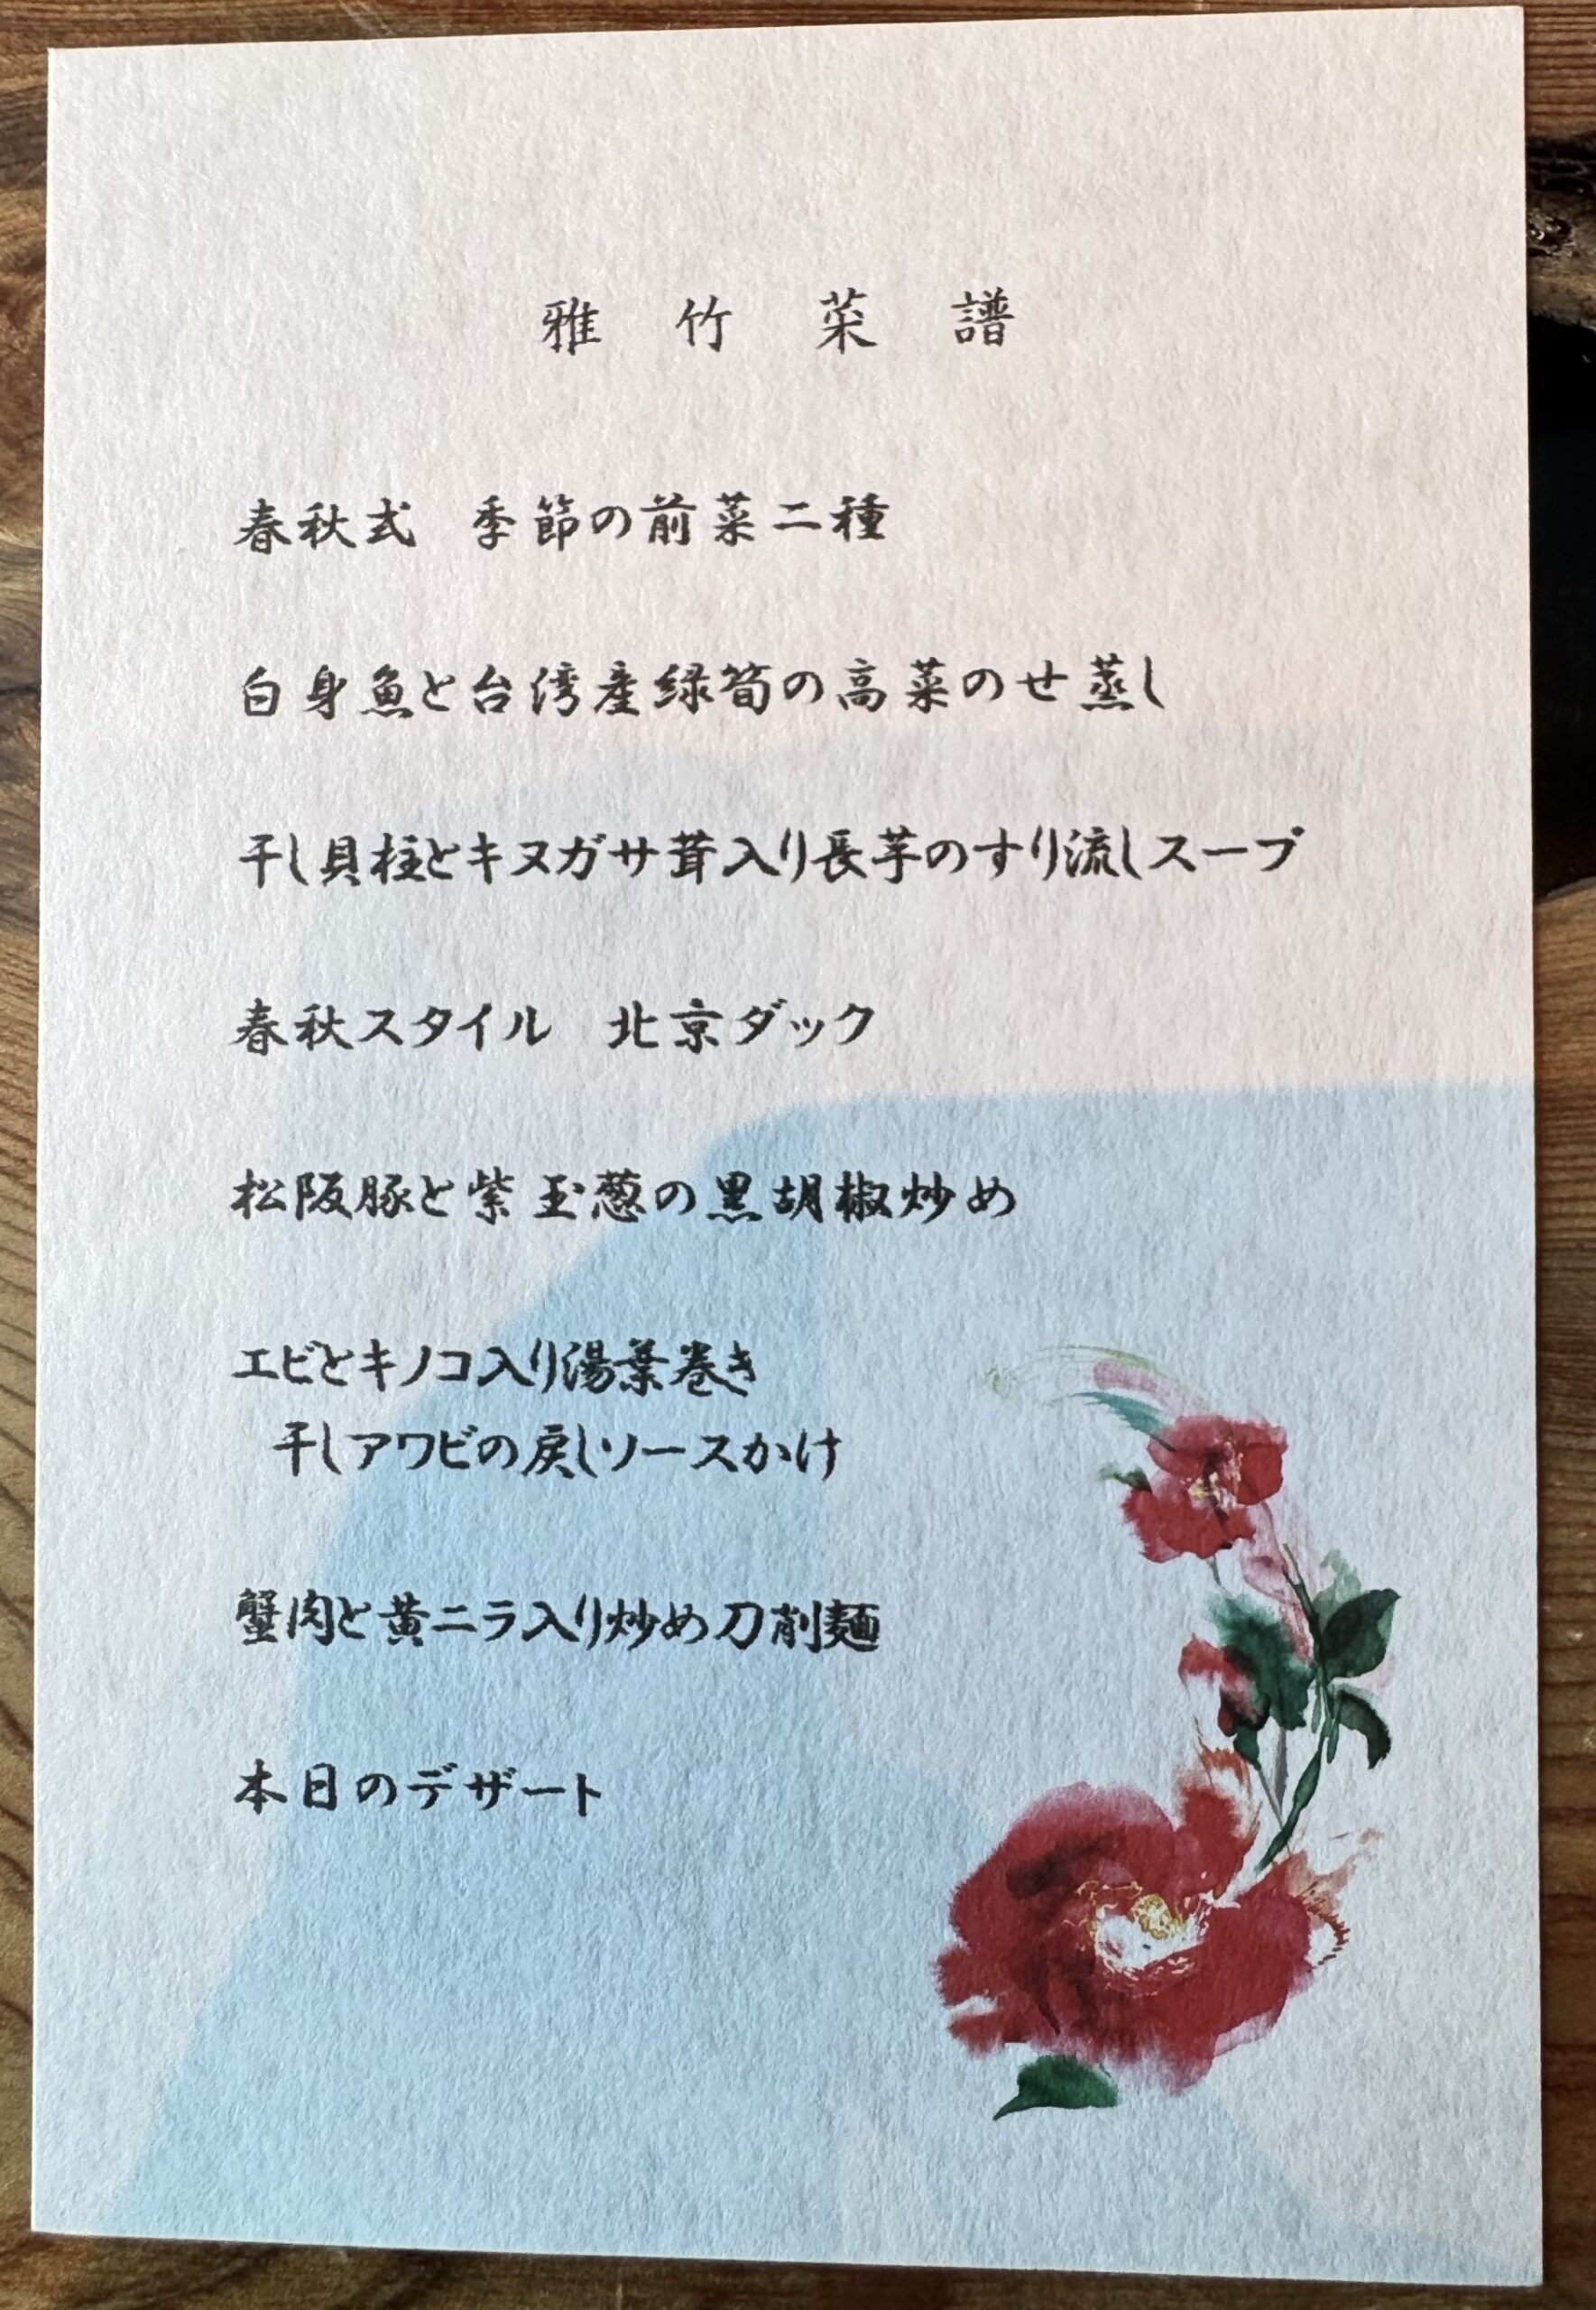 雅竹菜譜
春秋式 季節の前菜二種
白身魚と台湾産緑筍の高菜のせ蒸し
干し貝柱とキヌガサ茸入り長芋のすり流しスープ
春秋スタイル 北京ダック
松阪豚と紫玉葱の黒胡椒炒め
エビとキノコ入り湯葉巻き
干しアワビの戻しソースかけ
蟹肉と黄ニラ入り炒め刀削麺
本日のデザート